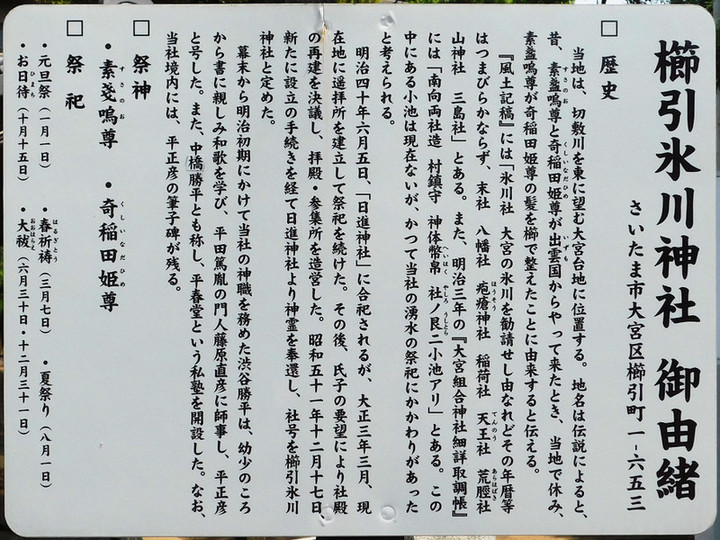 櫛引氷川神社 御由緒
さいたま市大宮区櫛引町一-六五三
□ 歴史
当地は、切敷川を東に望む大宮台地に位置する。地名は伝説によると、
昔、素盞嗚尊と奇稲田姫尊が出雲国からやって来たとき、当地で休み、
素盞嗚尊が奇稲田姫尊の髪を櫛で整えたことに由来すると伝える。
『風土記稿』には「氷川社 大宮の氷川を勧請せし由なれどその年暦等
はつまびらかならず、末社 八幡社 疱瘡神社 稲荷社 天王社 荒脛社
山神社 三島社」とある。また、明治三年の『大宮組合神社細詳取調帳』
には「南向両社造 村鎮守 神体幣帛 社ノ艮ニ小池アリ」とある。この
中にある小池は現在ないが、かつて当社の湧水の祭祀にかかわりがあった
と考えられる。
明治四十年六月五日、「日進神社」に合祀されるが、大正三年三月、現
在地に遥拝所を建立して祭祀を続けた。その後、氏子の要望により社殿
の再建を決議し、拝殿・参集所を造営した。昭和五十一年十二月十七日、
新たに設立の手続きを経て日進神社より神霊を奉還し、社号を櫛引氷川
神社と定めた。
幕末から明治初期にかけて当社の神職を務めた渋谷勝平は、幼少のころ
から書に親しみ和歌を学び、平田篤胤の門人藤原直彦に師事し、平正彦
と号した。また、中橋勝平とも称し、平春堂という私塾を開設した。なお、
当社境内には、平正彦の筆子碑が残る。
□ 祭神
・素戔嗚尊 ・奇稲田姫尊
□ 祭祀
・元旦祭(一月一日) ・春祈祷(三月七日) ・夏祭り(八月一日)
・お日待(十月十五日) ・大祓(六月三十日・十二月三十一日)